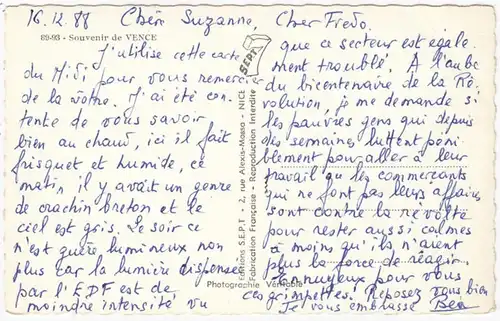 16.12.88 Chère Suzanne, Cher Fredo.
89-93 - Souvenir de VENCE
J'utilise cette carte
du Midi pour vous remercier
de la vôtre. J'ai été con-
tente de vous savoir
bien au chaud, ici il fait
frisquet et humide, ce
matin, il y avait un genre
de crachin breton et le
ciel est gris. Le soir ce
n'est guère lumineux non
plus car la lumière dispensée
par l'EDF est de
moindre intensité vu
SEPT
Editions S.E.P.T - 2, rue Alexis-Mossa - NICE
Fabrication Française - Reproduction Interdite
Photographie Véritable
que ce secteur est égale-
ment troublé. A l'aube
du bicentenaire de la Ré-
volution, je me demande si
les pauvres gens qui depuis
des semaines luttent péni-
blement pour aller à leur
travail qu les commerçants
qui ne font pas leurs affaires
sont contre la révolte
pour rester aussi calmes
à moins qu'ils n'aient
plus la force de réagir.
Ennuyeux pour vous
ces grimpettes. Reposez vous bien
Je vous embrasse Bea